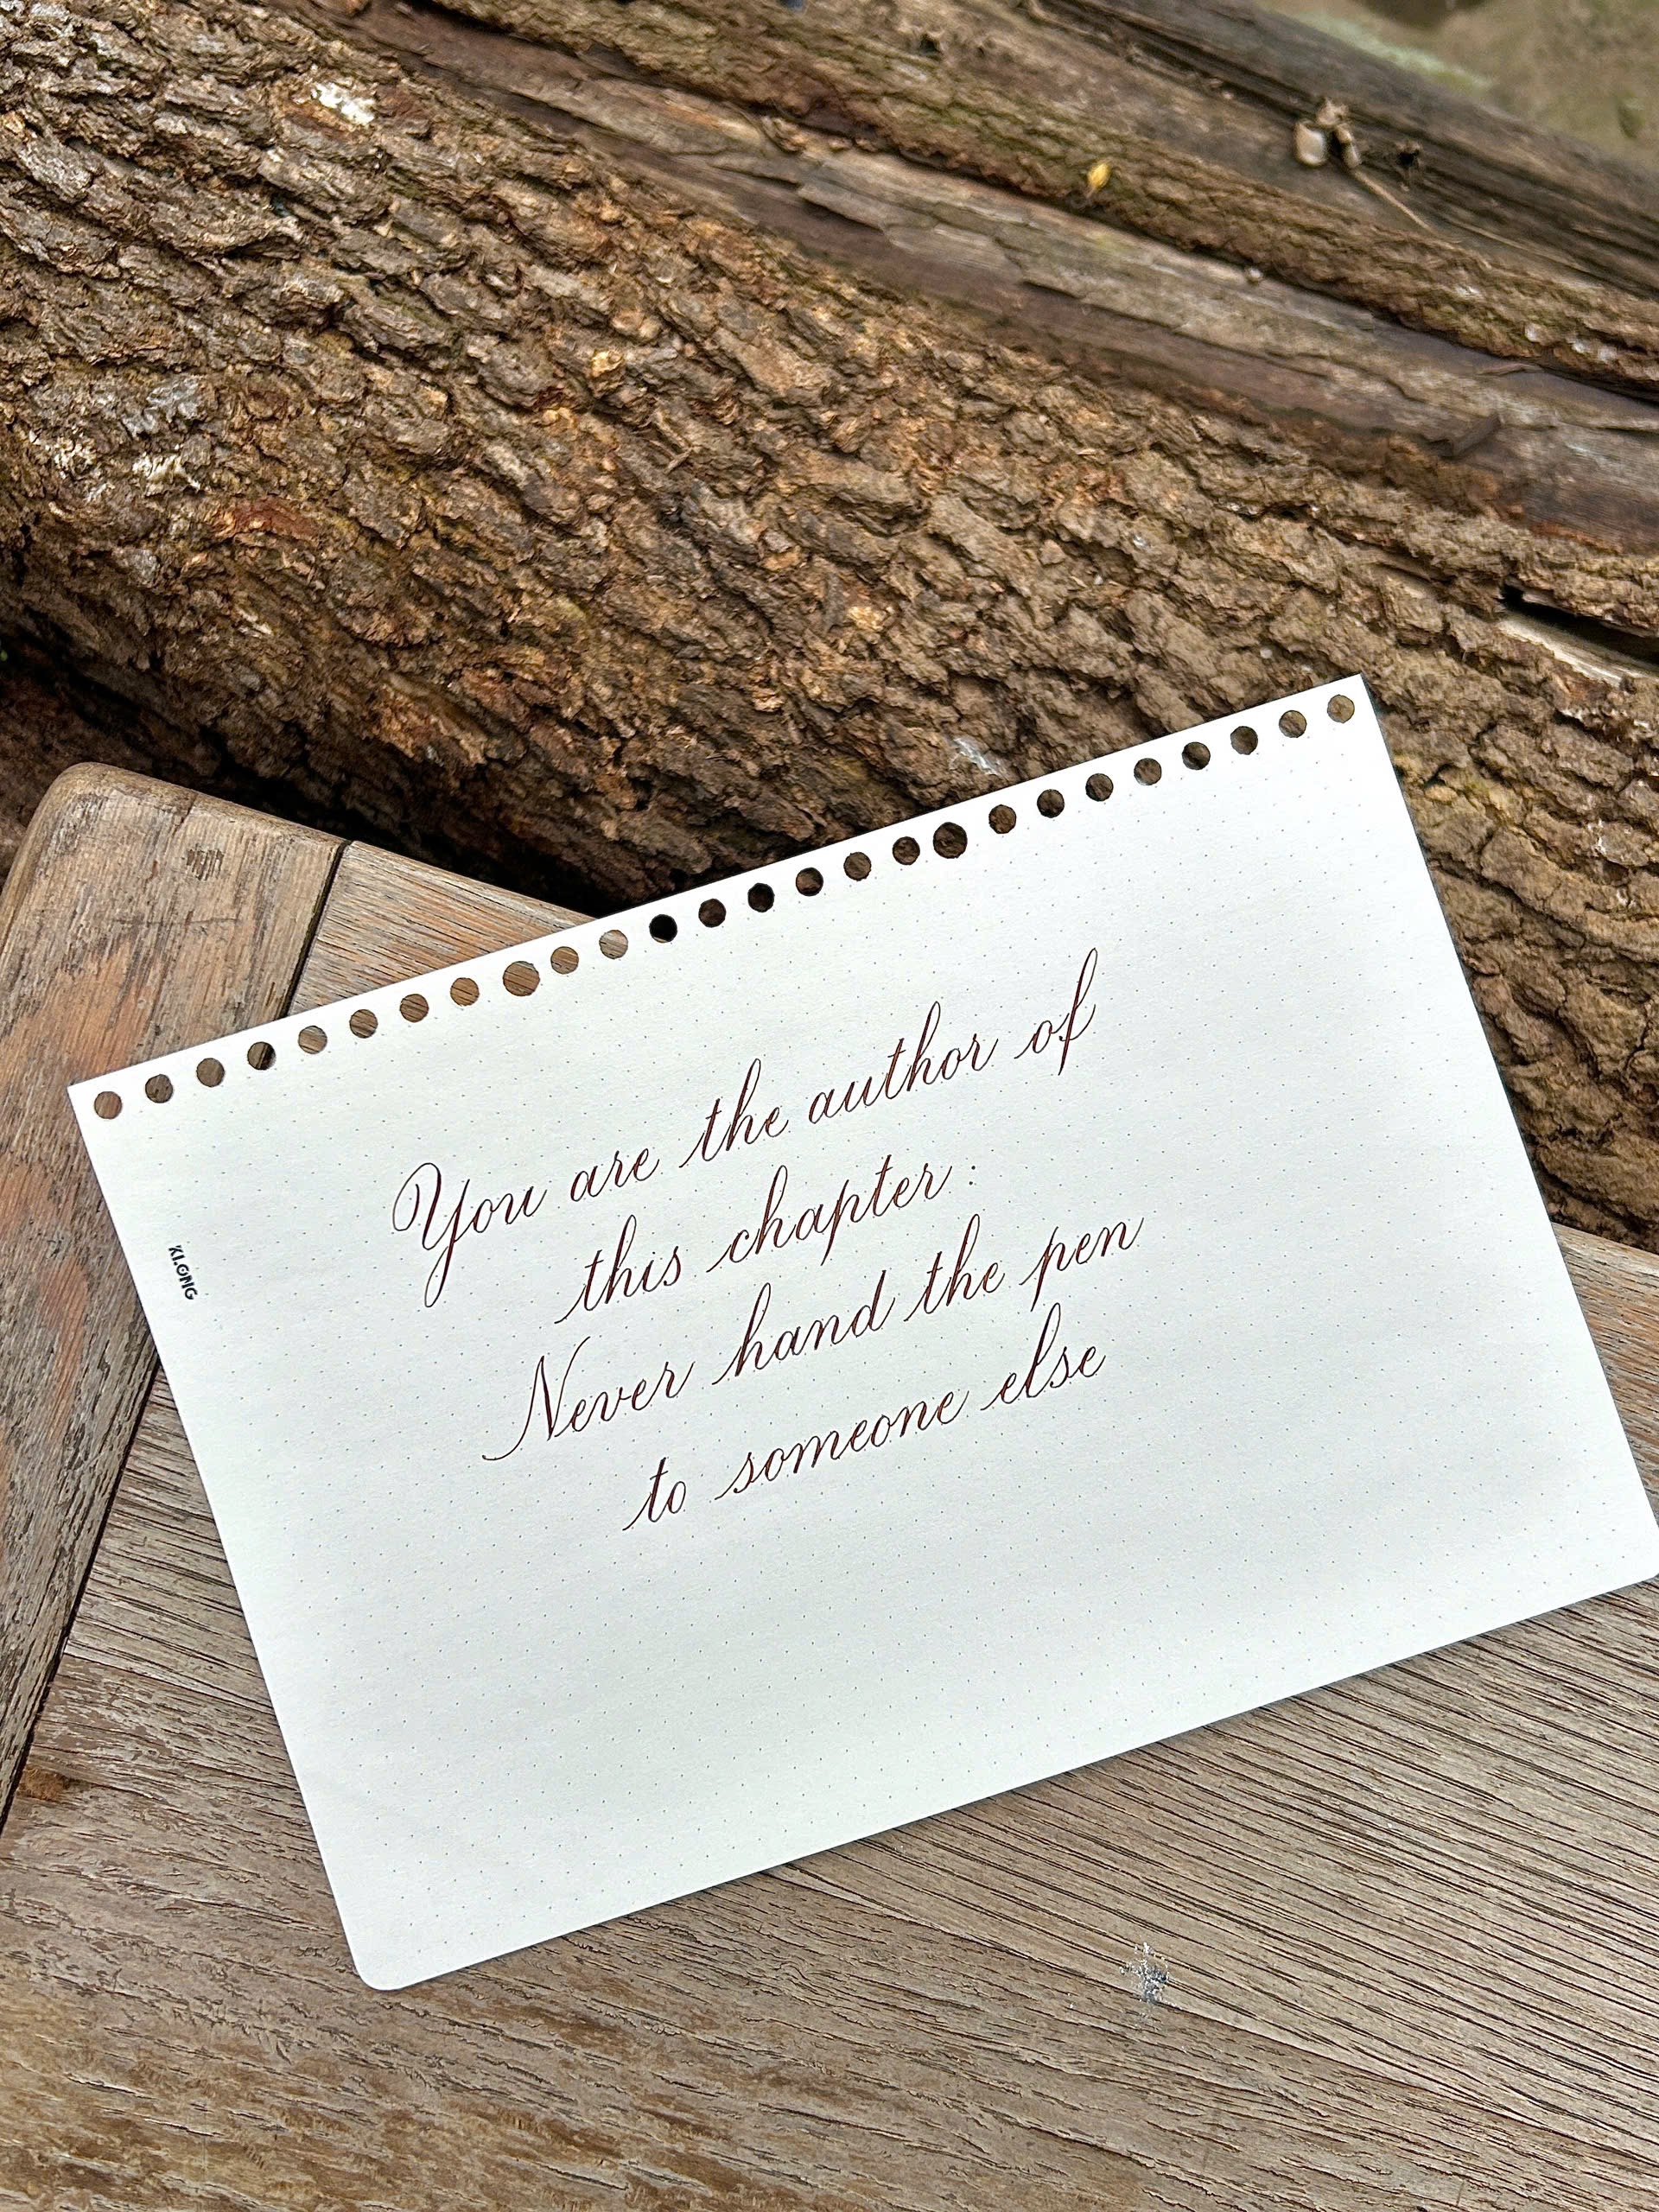 You are the author of
this chapter:
Never hand the pen
to someone else
KLONG